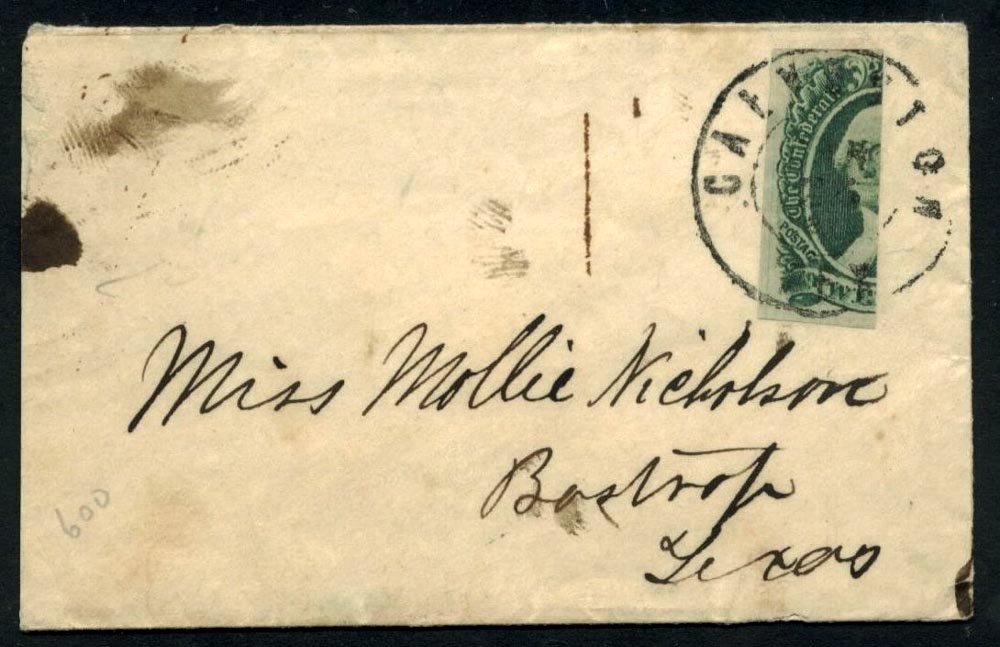 GALVESTON
The Confederate
POSTAG
TWE
Miss Mollie Nicholson
Bastrop
Texas
600